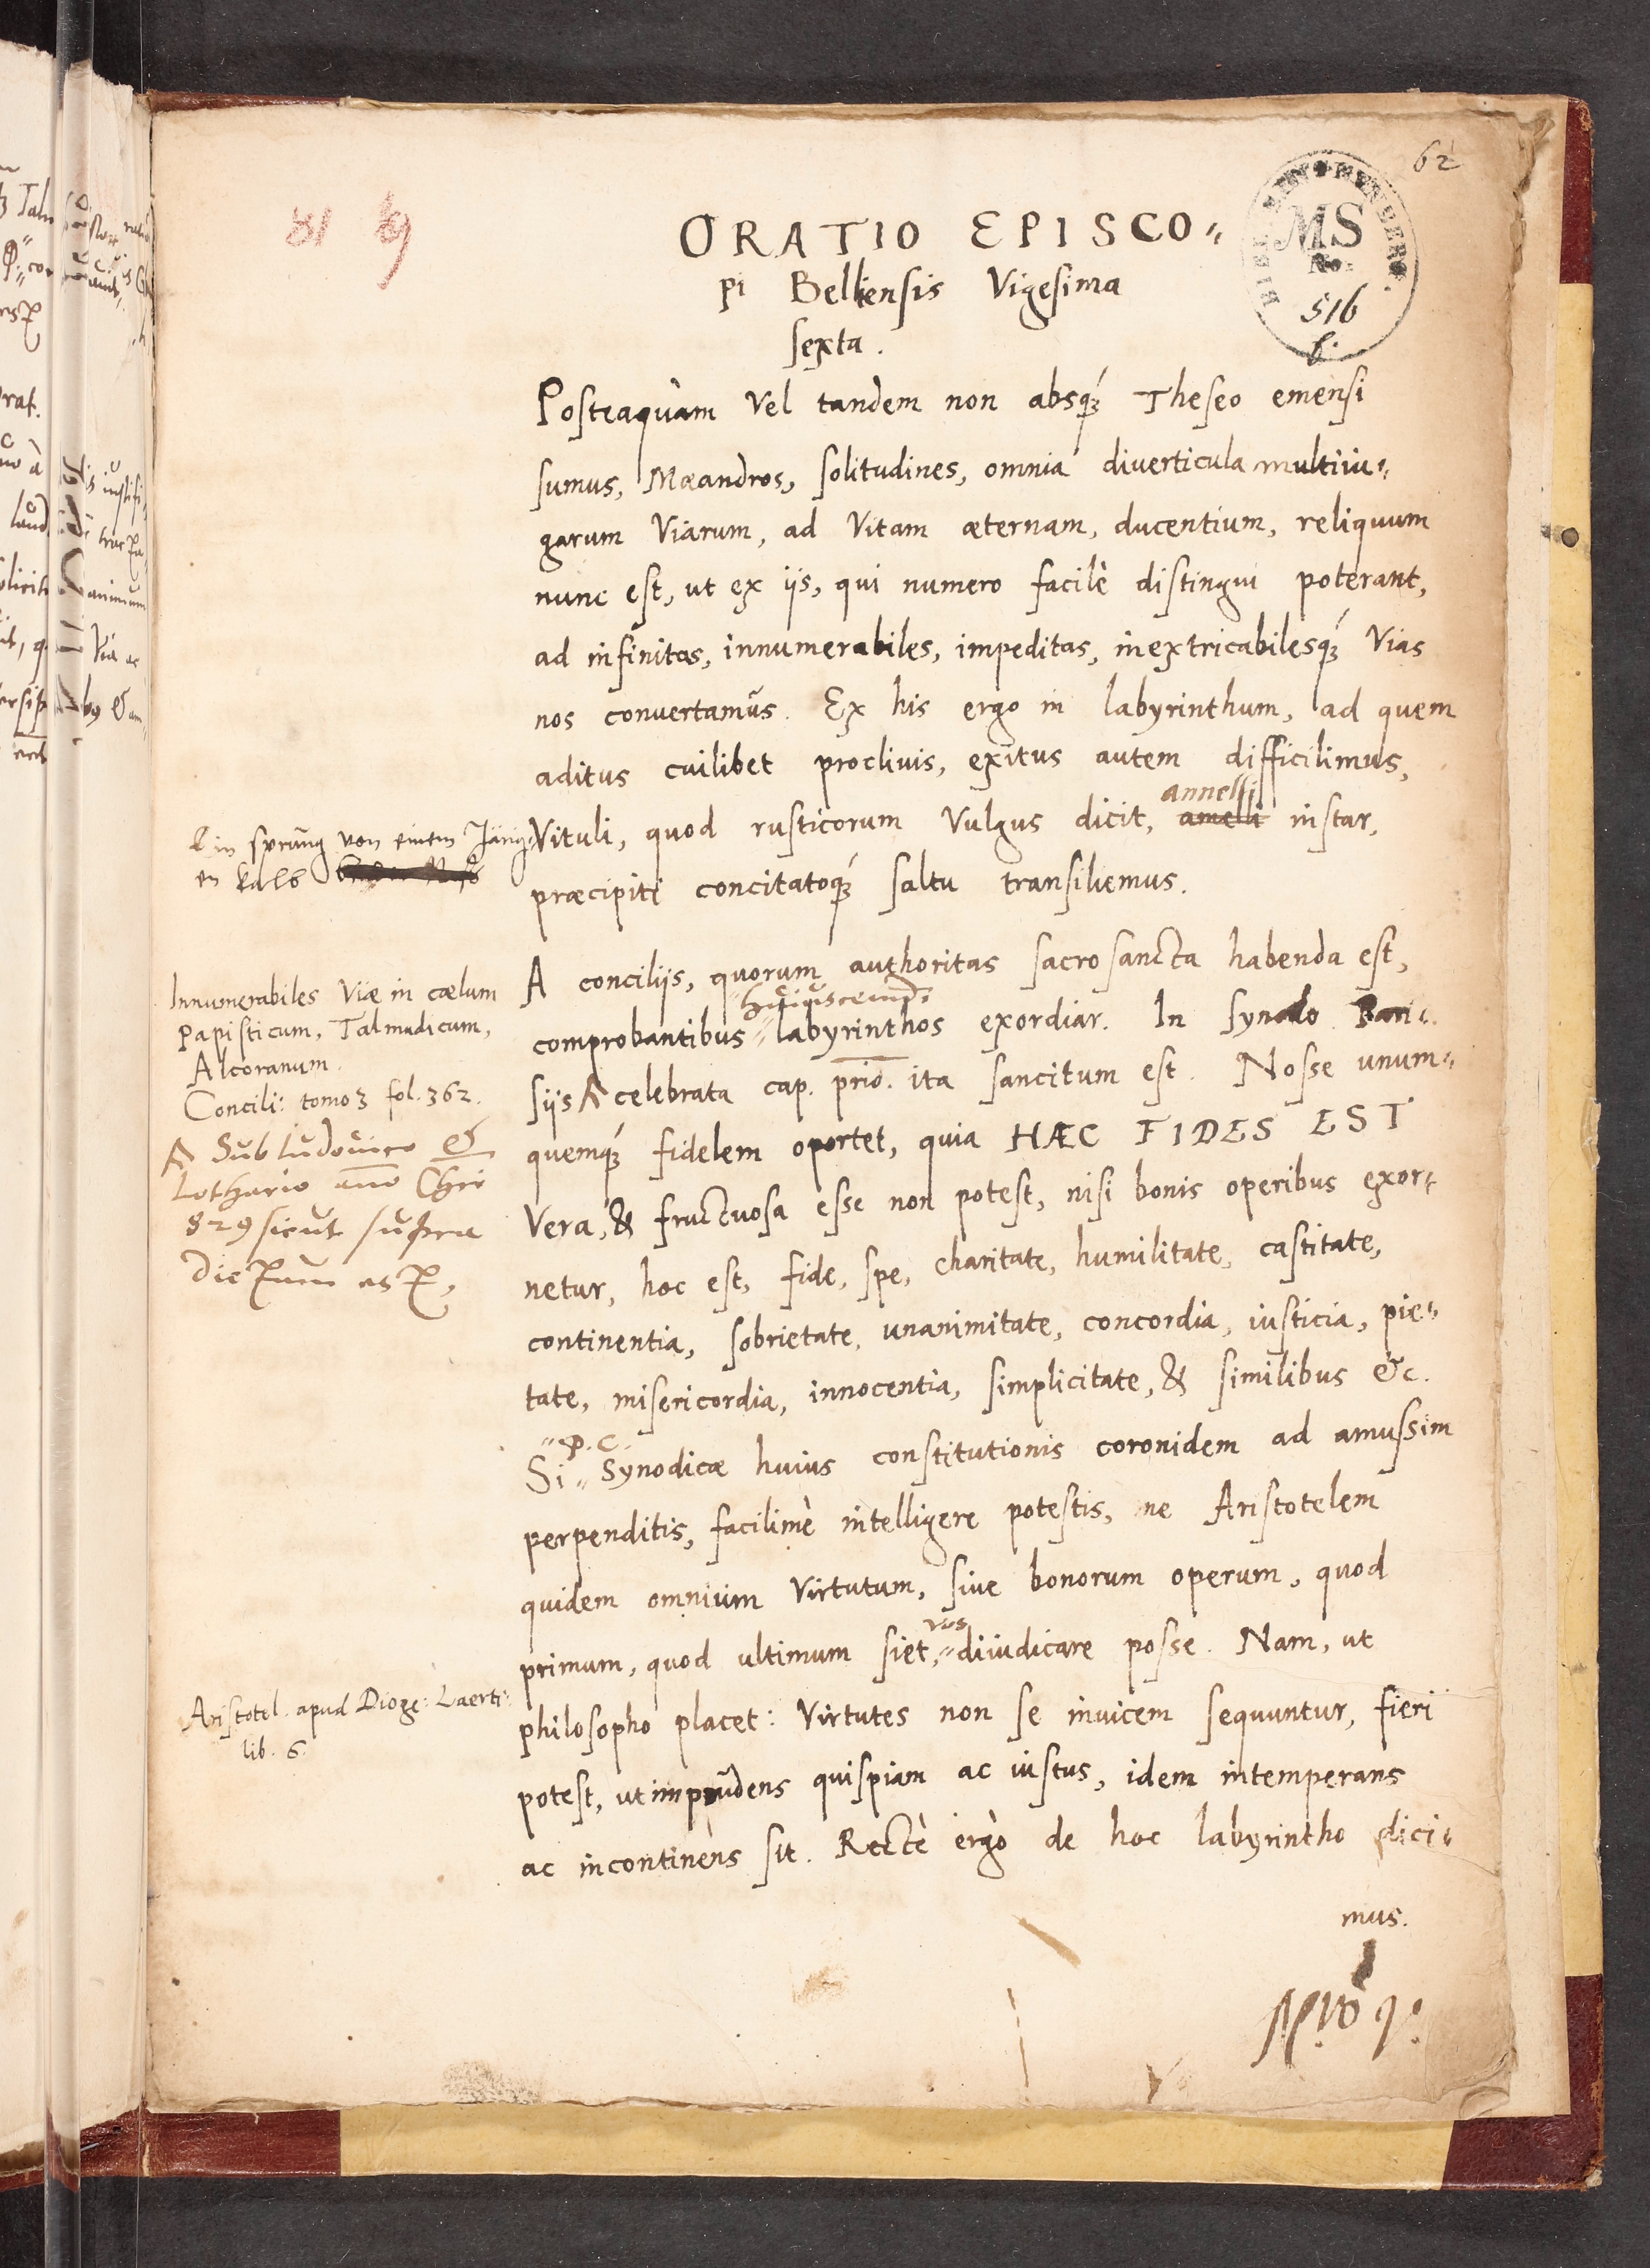 62
MS
No.
516
b.
ORATIO EPISCO„
pi Belliensis Vigesima
sexta.
Posteaquàm Vel tandem non absq́ꝫ Theseo emensi
sumus, Mæandros, solitudines, omnia diverticula multiiu„
garum Viarum, ad Vitam æternam, ducentium, reliquum
nunc est, ut ex iis, qui numero facilè distingui poterant,
ad infinitas, innumerabiles, impeditas, inextricabilesq́ꝫ Vias
nos conuertamus. Ex his ergo in labyrinthum, ad quem
aditus cuilibet procliuis, exitus autem difficilimus,
annelli
Vituli, quod rusticorum Vulgus dicit, amelli instar,
præcipiti concitatoq́ꝫ saltu transiliemus.
Ein sprung von einem Jung
en kalb
A conciliis, quorum authoritas sacrosancta habenda est,
huiuscemodi
comprobantibus „ labyrinthos exordiar. In synodo Pari„
siis celebrata cap. prio. ita sancitum est. Nosse unum„
quemq́ꝫ fidelem oportet, quia HÆC FIDES EST
Vera, & fructuosa esse non potest, nisi bonis operibus exor„
netur, hoc est, fide, spe, charitate, humilitate, castitate,
continentia, sobrietate, unanimitate, concordia, iusticia, pie„
tate, misericordia, innocentia, simplicitate, & similibus &c.
„ P. C.
Si „ Synodicæ huius constitutionis coronidem ad amussim
perpenditis, facilimè intelligere potestis, ne Aristotelem
quidem omnium Virtutum, siue bonorum operum, quod
vos
primum, quod ultimum siet, „ diiudicare posse. Nam, ut
philosopho placet: Virtutes non se inuicem sequuntur, fieri
potest, ut imprudens quispiam ac iustus, idem intemperans
ac incontinens sit. Rectè ergò de hoc labyrintho dici„
mus.
Innumerabiles Viæ in cælum
Papisticum, Talmudicum,
Alcoranum.
Concili: tomo 3 fol. 362.
Sub Ludouico &
Lothario anno Chri
829 sicut supra
dictum est,
Aristotel. apud Dioge: Laerti:
lib. 6.